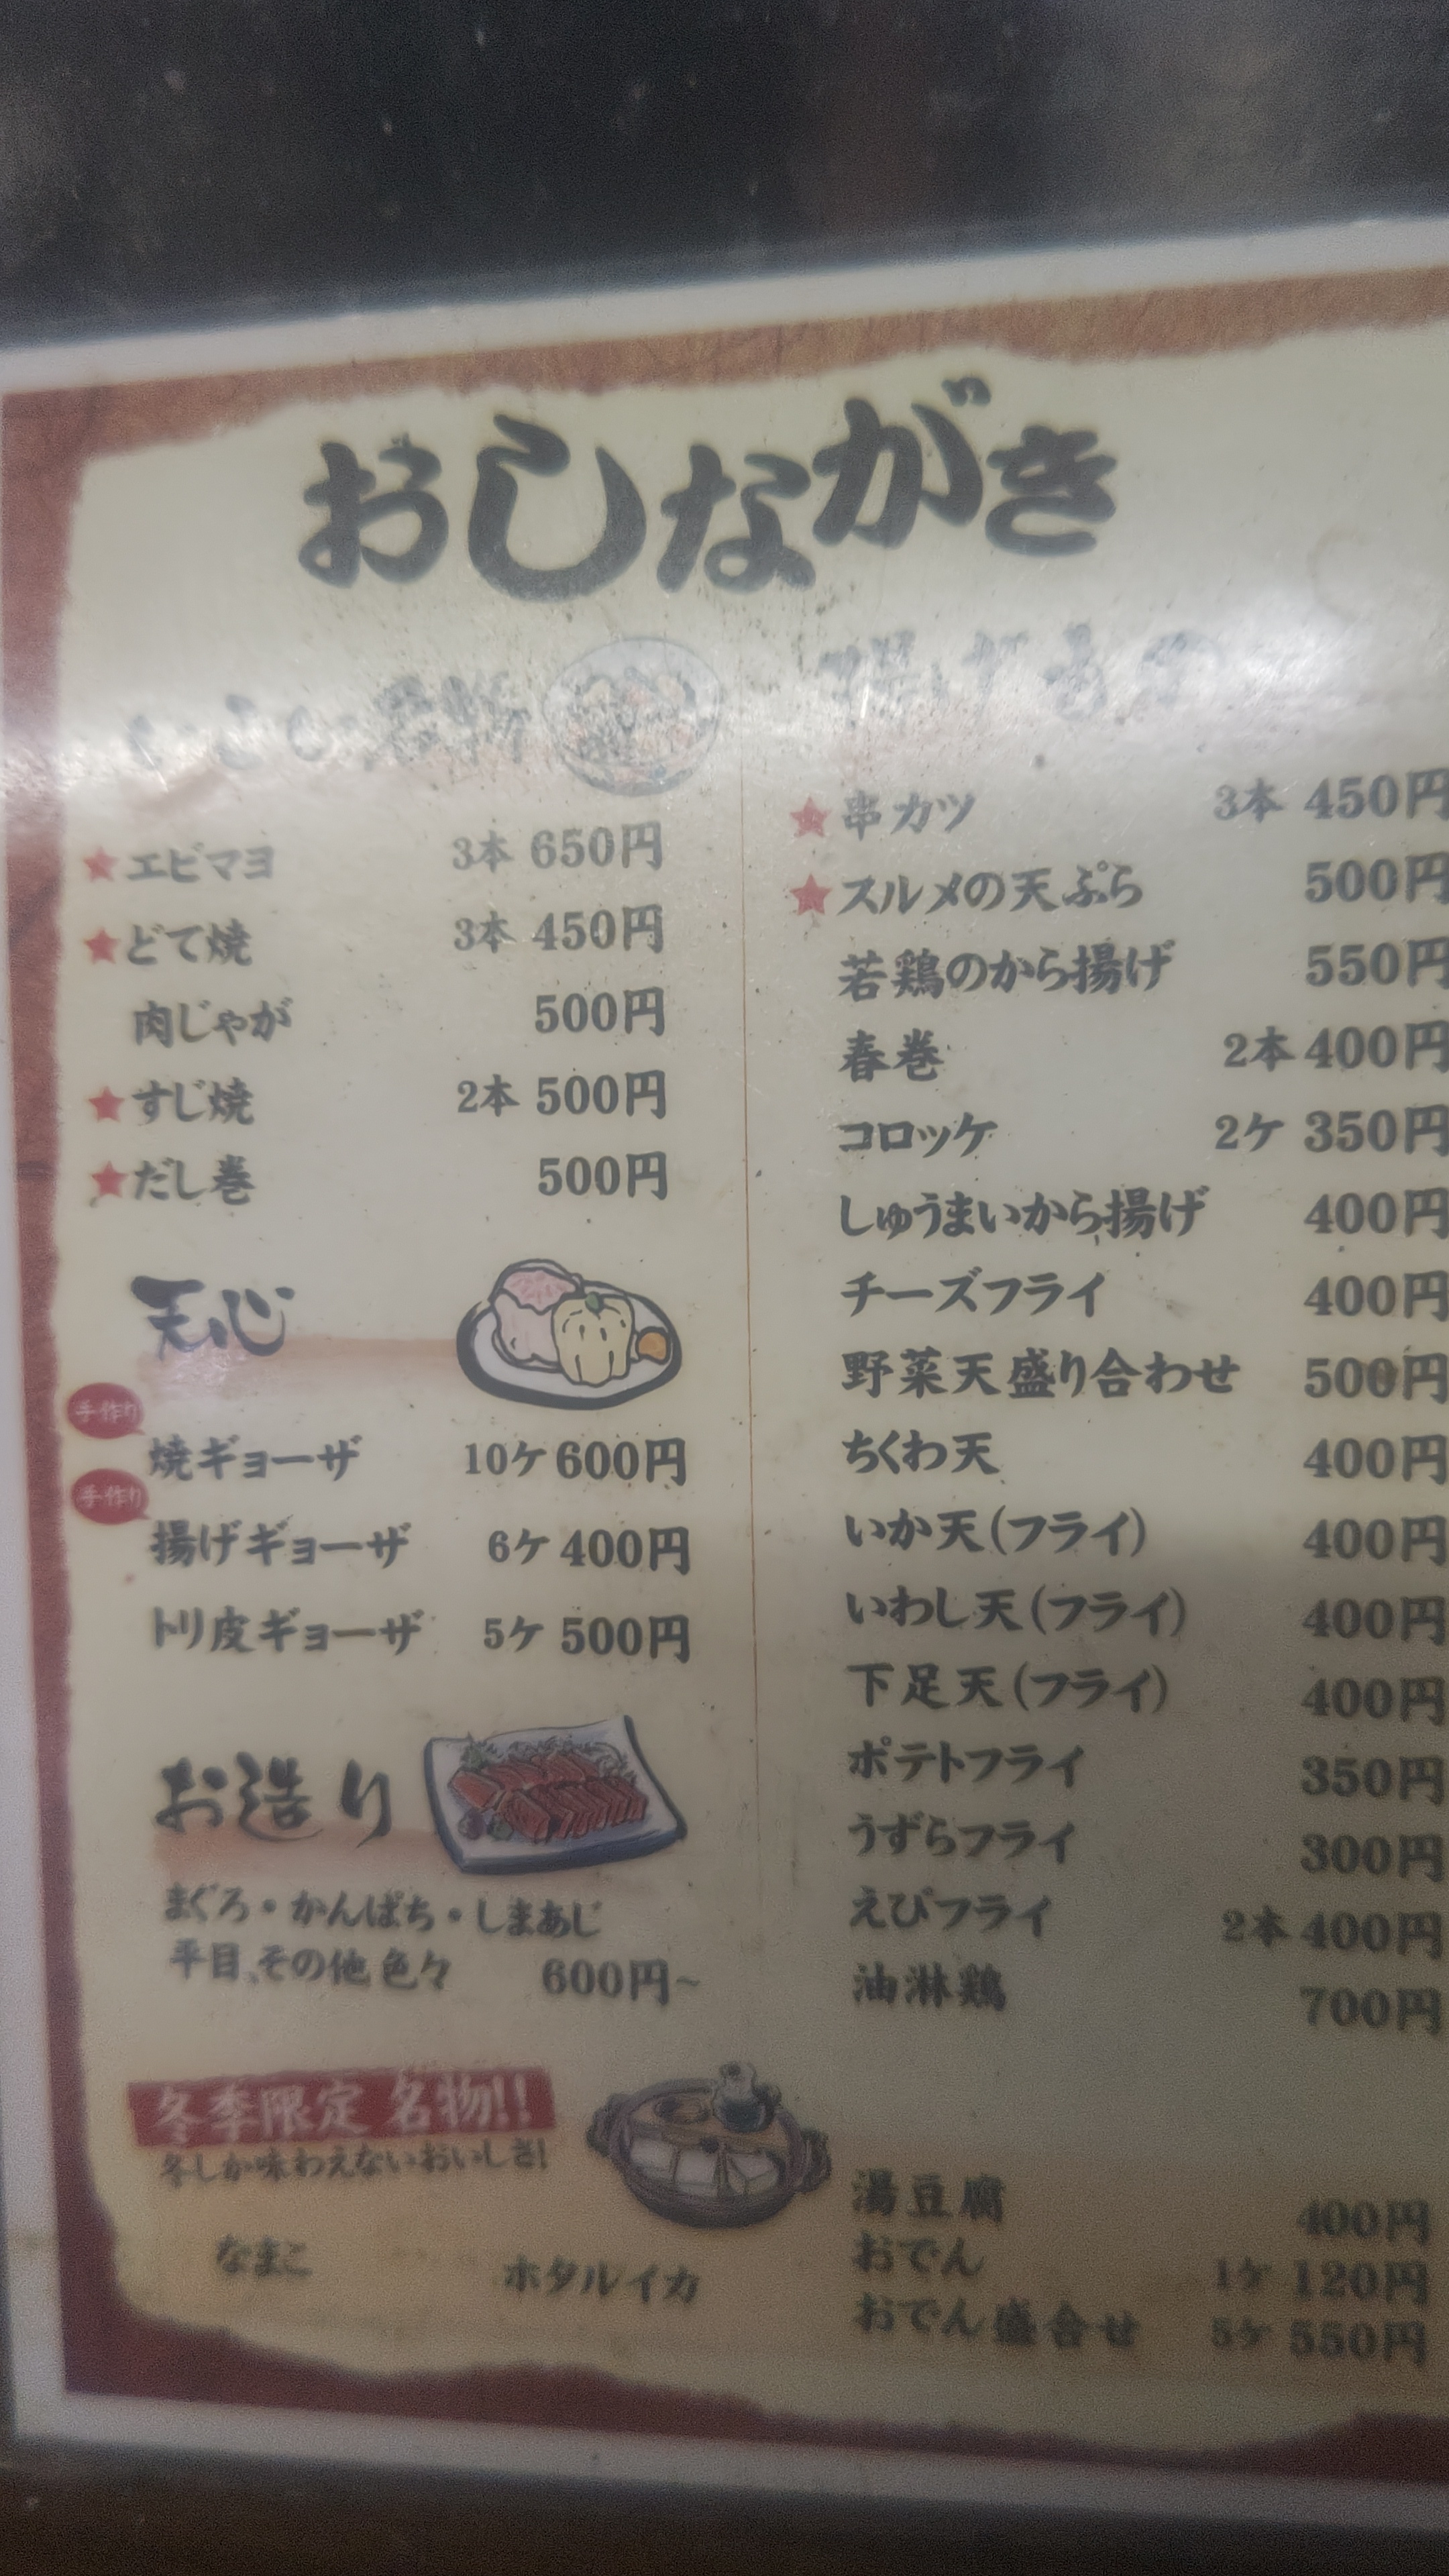 おしながき
名物
★エビマヨ 3本 650円
★どて焼 3本 450円
肉じゃが 500円
★すじ焼 2本 500円
★だし巻 500円
天心
手作り
焼ギョーザ 10ケ 600円
手作り
揚げギョーザ 6ケ 400円
トリ皮ギョーザ 5ケ 500円
お造り
まぐろ・かんぱち・しまあじ
平目、その他色々 600円~
冬季限定 名物!!
冬しか味わえないおいしさ!
なまこ ホタルイカ
揚げもの
★串カツ 3本 450円
★スルメの天ぷら 500円
若鶏のから揚げ 550円
春巻 2本 400円
コロッケ 2ケ 350円
しゅうまいから揚げ 400円
チーズフライ 400円
野菜天盛り合わせ 500円
ちくわ天 400円
いか天(フライ) 400円
いわし天(フライ) 400円
下足天(フライ) 400円
ポテトフライ 350円
うずらフライ 300円
えびフライ 2本 400円
油淋鶏 700円
湯豆腐 400円
おでん 1ケ 120円
おでん盛合せ 5ケ 550円